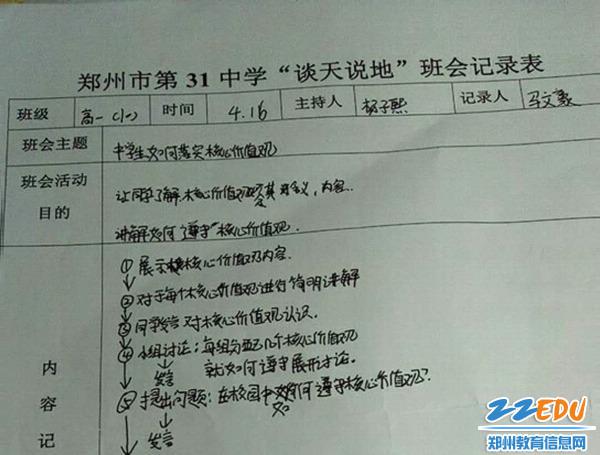 郑州市第 31 中学“谈天说地”班会记录表
班级 高一 (一) 时间 4.16 主持人 杨子熙 记录人
班会主题 中学生如何落实核心价值观
班会活动目的 让同学了解核心价值观及其含义,内容.
讲解如何“遵守”核心价值观.
内容记
① 展示核心价值观内容.
② 对于每个核心价值观进行简明讲解
③ 同学发言对核心价值观认识.
④ 小组讨论:每组分配几个核心价值观
就如何遵守展开讨论.
发言
⑤ 提出问题:在校园中如何遵守核心价值观?
发言
22EDU
郑州教育信息网